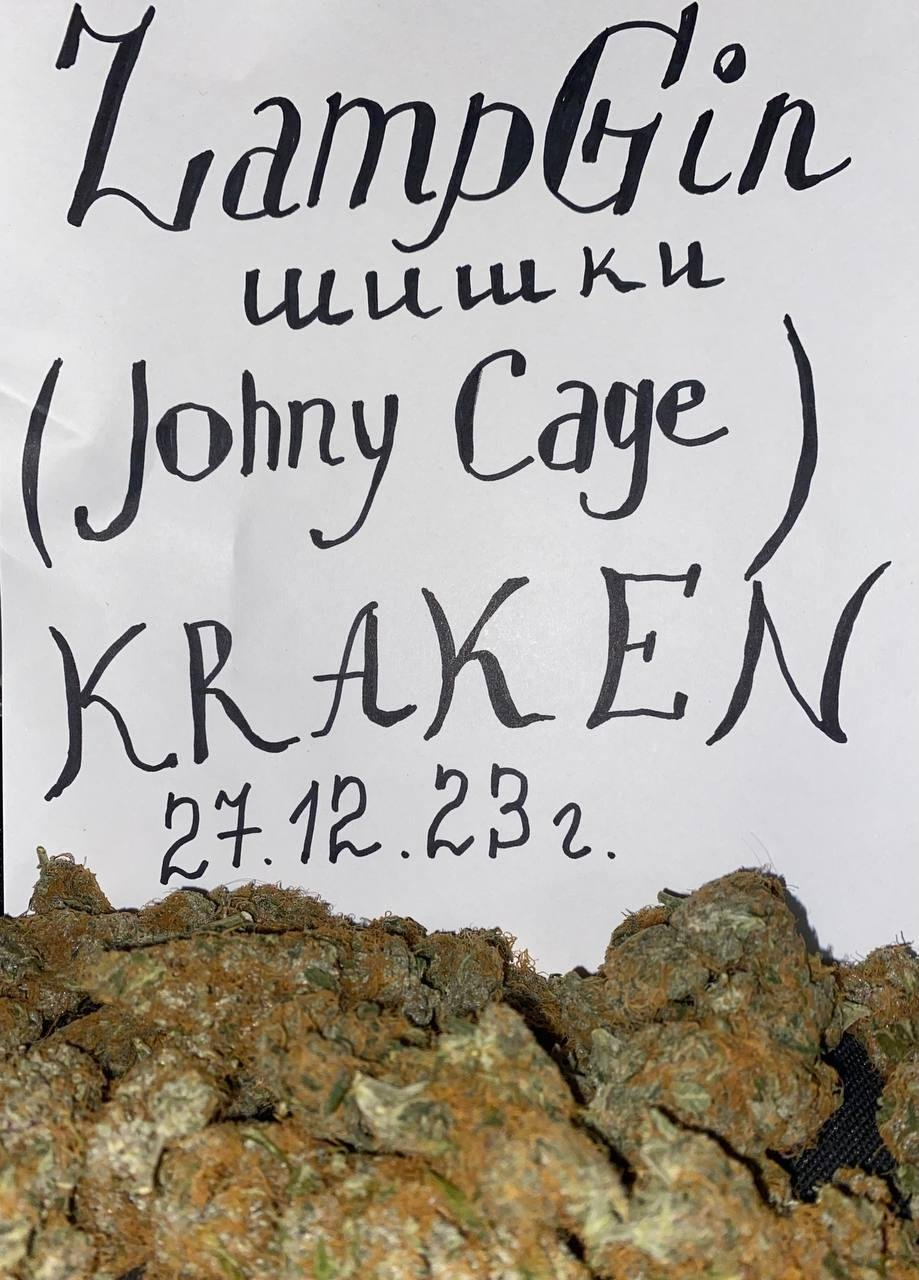 LampGin
шишки
(Johny Cage)
KRAKEN
27.12.23г.